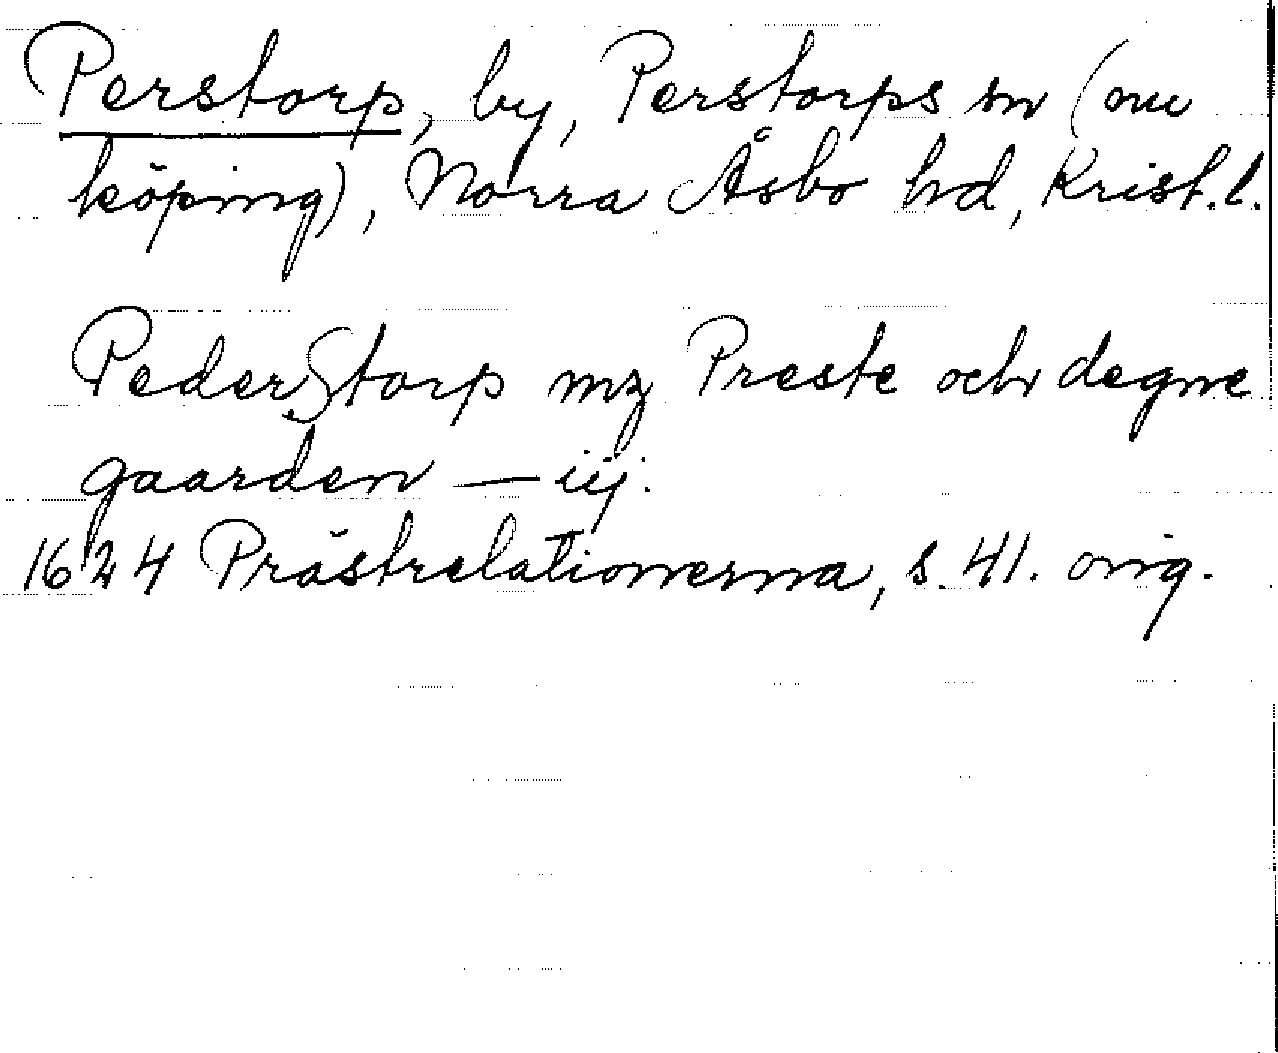 Perstorp, by, Perstorps sn (nu
köping), Norra Åsbo hd, Krist. l.
PederStorp mz Preste och degne
gaarden — iij.
1624 Prästrelationerna, s. 41. orig.